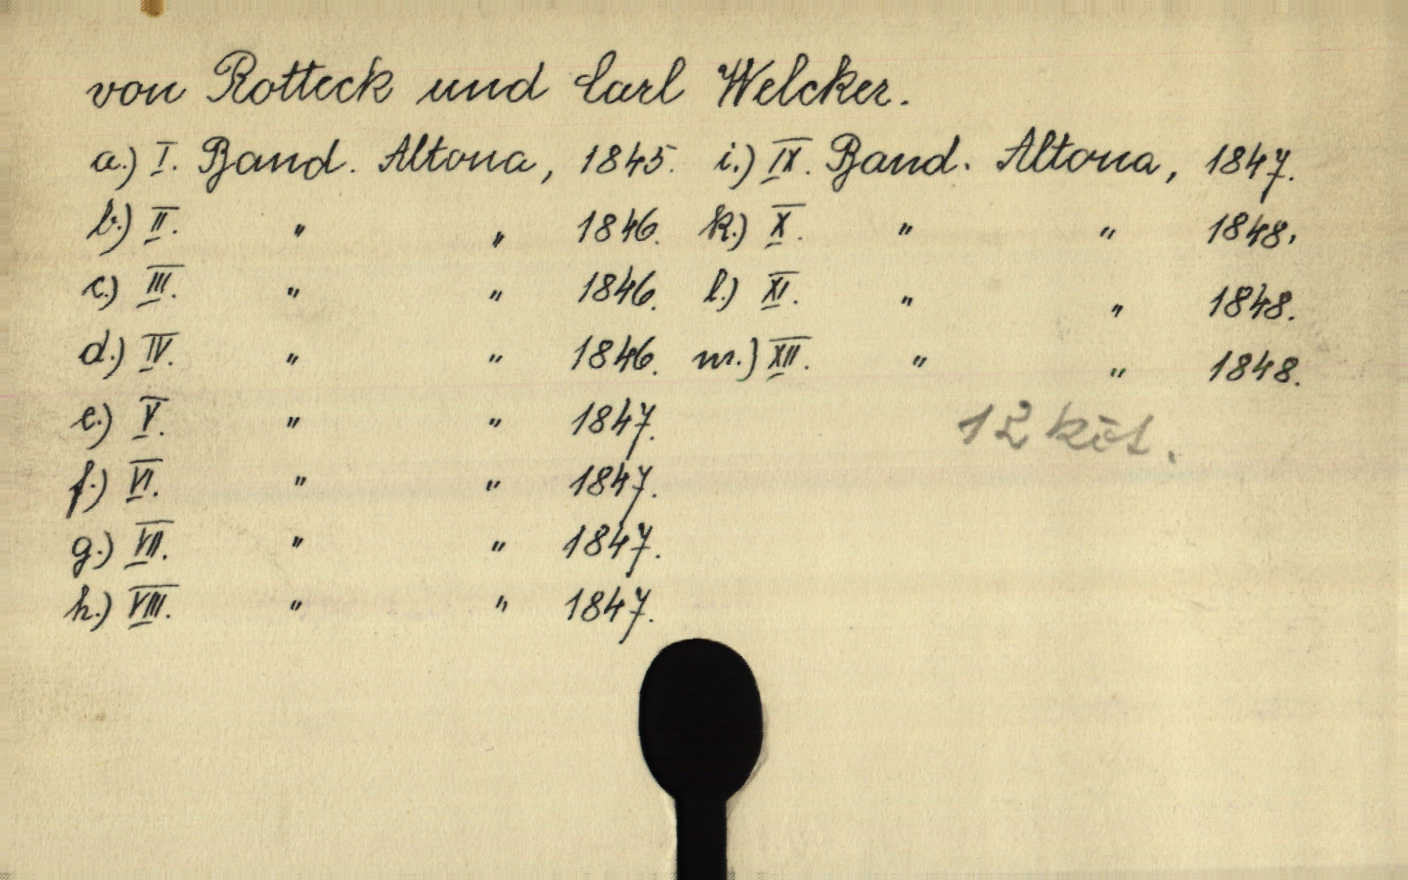 von Rotteck und Carl Welcker.
a.) I. Band. Altona, 1845.
b.) II. " " 1846.
c.) III. " " 1846.
d.) IV. " " 1846.
e.) V. " " 1847.
f.) VI. " " 1847.
g.) VII. " " 1847.
h.) VIII. " " 1847.
i.) IX. Band. Altona, 1847.
k.) X. " " 1848.
l.) XI. " " 1848.
m.) XII. " " 1848.
12 köt.